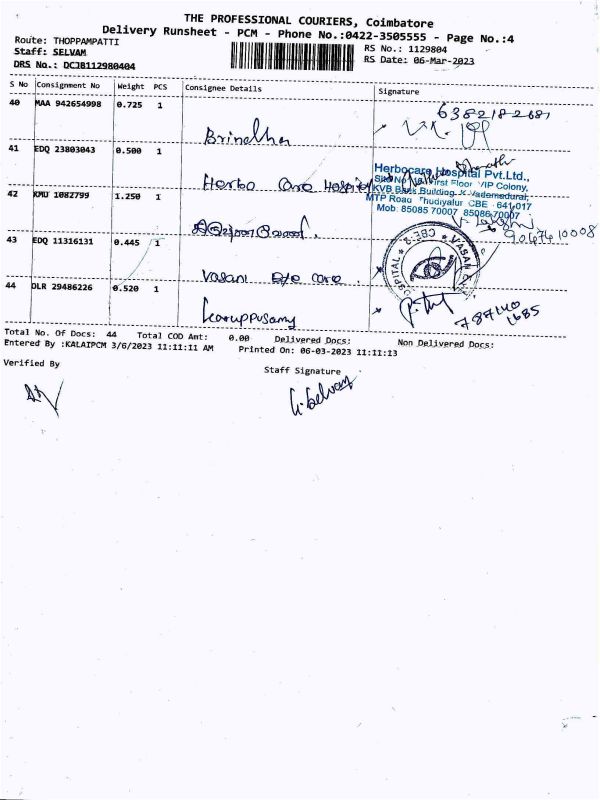 THE PROFESSIONAL COURIERS, Coimbatore
Delivery Runsheet - PCM - Phone No.:0422-3505555 - Page No.:4
Route: THOPPAMPATTI
Staff: SELVAM
DRS No.: DCJB112980404
RS No.: 1129804
RS Date: 06-Mar-2023
S No Consignment No Weight PCS Consignee Details Signature
40 MAA 942654998 0.725 1
Brindha
41 EDQ 23803043 0.500 1
Herbo Care Hospital
Herbocare Hospital Pvt.Ltd.,
First Floor VIP Colony,
KVB Bank Building, K.Vademadurai,
MTP Road Thudiyalur CBE - 641 017
Mob: 85085 70007 85086 70007
42 KMU 1082799 1.250 1
43 EDQ 11316131 0.445 1
Vasan Eye Care.
VASAN
HOSPITAL
CBE-2
44 DLR 29486226 0.520 1
Karuppusamy
Total No. Of Docs: 44 Total COD Amt: 0.00 Delivered Docs: Non Delivered Docs:
Entered By :KALAIPCM 3/6/2023 11:11:11 AM Printed On: 06-03-2023 11:11:13
Verified By
Staff Signature
G.Selvam